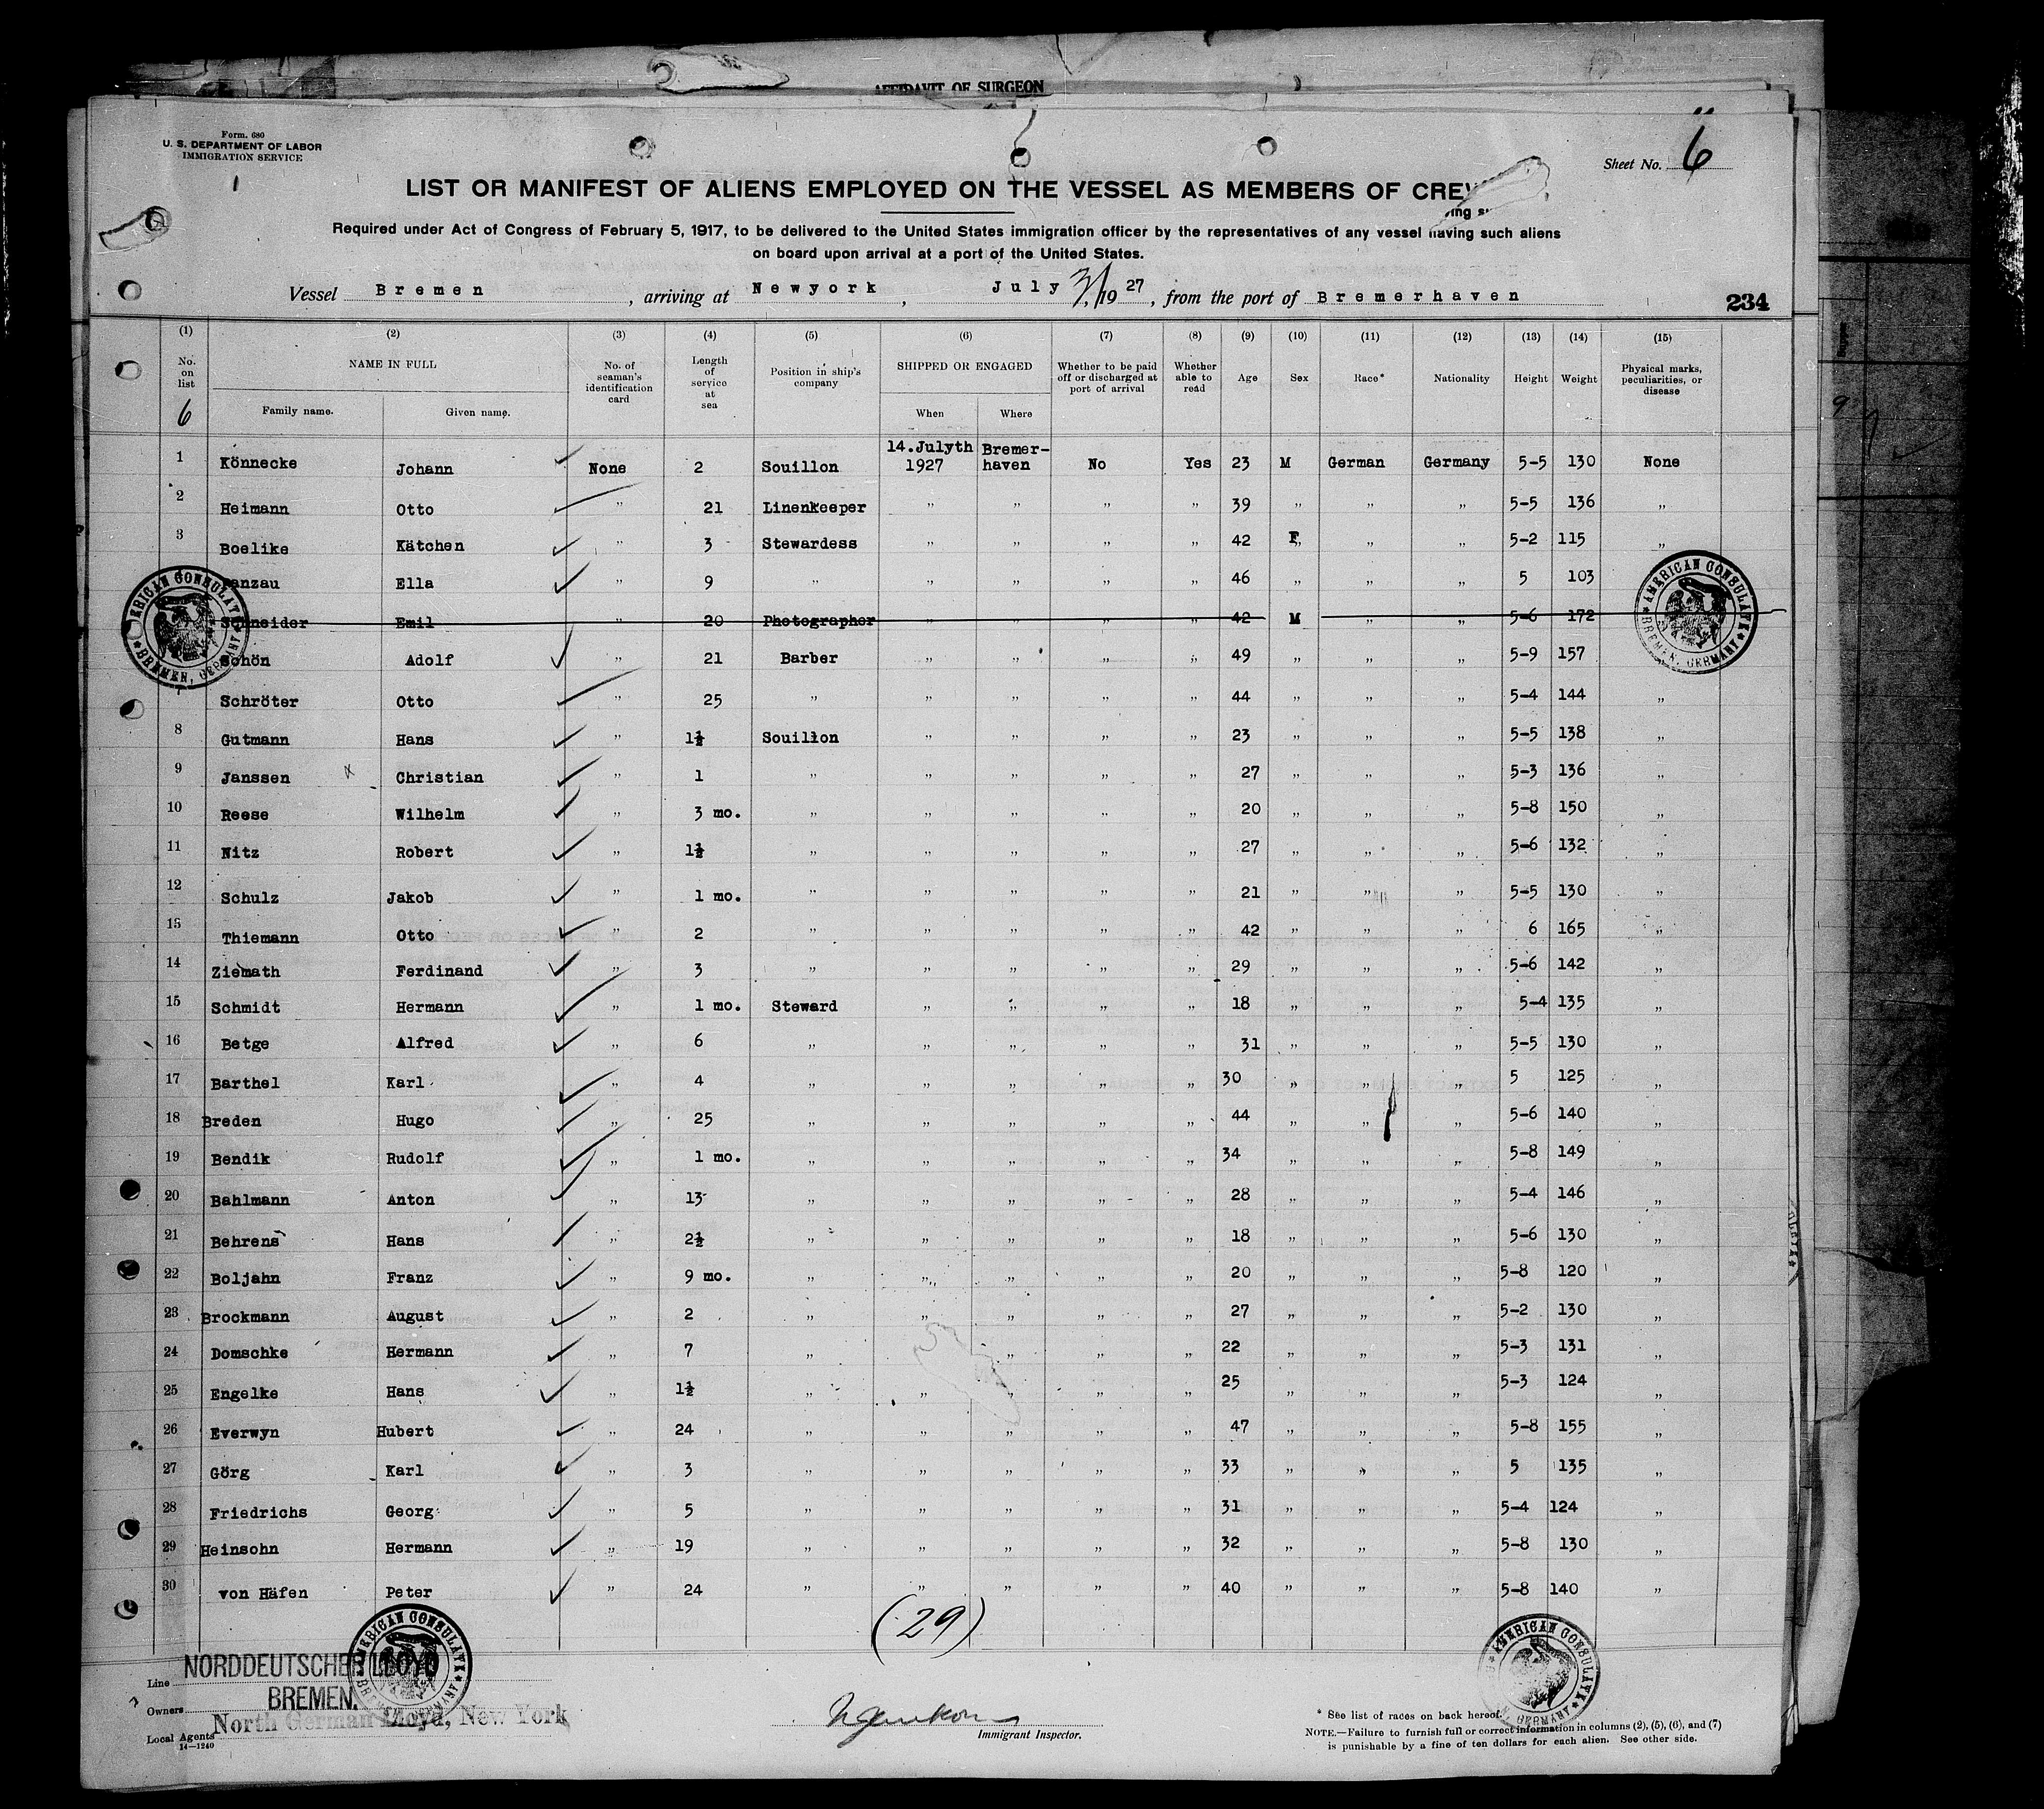 AFFIDAVIT OF SURGEON
Form 680
U. S. DEPARTMENT OF LABOR
IMMIGRATION SERVICE
Sheet No. 6
LIST OR MANIFEST OF ALIENS EMPLOYED ON THE VESSEL AS MEMBERS OF CREW
Required under Act of Congress of February 5, 1917, to be delivered to the United States immigration officer by the representatives of any vessel having such aliens
on board upon arrival at a port of the United States.
Vessel Bremen, arriving at Newyork, July 1927, from the port of Bremerhaven
234
(1) (2) (3) (4) (5) (6) (7) (8) (9) (10) (11) (12) (13) (14) (15)
No. on list NAME IN FULL No. of seaman's identification card Length of service at sea Position in ship's company SHIPPED OR ENGAGED Whether to be paid off or discharged at port of arrival Whether able to read Age Sex Race* Nationality Height Weight Physical marks, peculiarities, or disease
6 Family name. Given name. When Where
1 Könnecke Johann None 2 Souillon 14.Julyth 1927 Bremer-haven No Yes 23 M German Germany 5-5 130 None
2 Heimann Otto " 21 Linenkeeper " " " " 39 " " " 5-5 136 "
3 Boelike Kätchen " 3 Stewardess " " " " 42 F " " 5-2 115 "
anzau Ella " 9 " " " " " 46 " " " 5 103
Schneider Emil " 20 Photographer " " " " 42 M " " 5-6 172
Schön Adolf " 21 Barber " " " " 49 " " " 5-9 157
7 Schröter Otto " 25 " " " " " 44 " " " 5-4 144 "
8 Gutmann Hans " 1½ Souillon " " " " 23 " " " 5-5 138 "
9 Janssen x Christian " 1 " " " " " 27 " " " 5-3 136 "
10 Reese Wilhelm " 3 mo. " " " " " 20 " " " 5-8 150 "
11 Nitz Robert " 1½ " " " " " 27 " " " 5-6 132 "
12 Schulz Jakob " 1 mo. " " " " " 21 " " " 5-5 130 "
13 Thiemann Otto " 2 " " " " " 42 " " " 6 165 "
14 Ziemath Ferdinand " 3 " " " " " 29 " " " 5-6 142 "
15 Schmidt Hermann " 1 mo. Steward " " " " 18 " " " 5-4 135 "
16 Betge Alfred " 6 " " " " " 31 " " " 5-5 130 "
17 Barthel Karl " 4 " " " " " 30 " " " 5 125 "
18 Breden Hugo " 25 " " " " " 44 " " " 5-6 140 "
19 Bendik Rudolf " 1 mo. " " " " " 34 " " " 5-8 149 "
20 Bahlmann Anton " 13 " " " " " 28 " " " 5-4 146 "
21 Behrens Hans " 2½ " " " " " 18 " " " 5-6 130 "
22 Boljahn Franz " 9 mo. " " " " " 20 " " " 5-8 120 "
23 Brockmann August " 2 " " " " " 27 " " " 5-2 130 "
24 Domschke Hermann " 7 " " " " " 22 " " " 5-3 131 "
25 Engelke Hans " 1½ " " " " " 25 " " " 5-3 124 "
26 Everwyn Hubert " 24 " " " " " 47 " " " 5-8 155 "
27 Görg Karl " 3 " " " " " 33 " " " 5 135 "
28 Friedrichs Georg " 5 " " " " " 31 " " " 5-4 124 "
29 Heinsohn Hermann " 19 " " " " " 32 " " " 5-8 130 "
30 von Häfen Peter " 24 " " " " " 40 " " " 5-8 140 "
(29)
AMERICAN CONSULATE
BREMEN, GERMANY
Line NORDDEUTSCHER LLOYD
Owners BREMEN.
Local Agents North German Lloyd, New York
14-1240
Immigrant Inspector.
* See list of races on back hereof.
NOTE.—Failure to furnish full or correct information in columns (2), (5), (6), and (7)
is punishable by a fine of ten dollars for each alien. See other side.